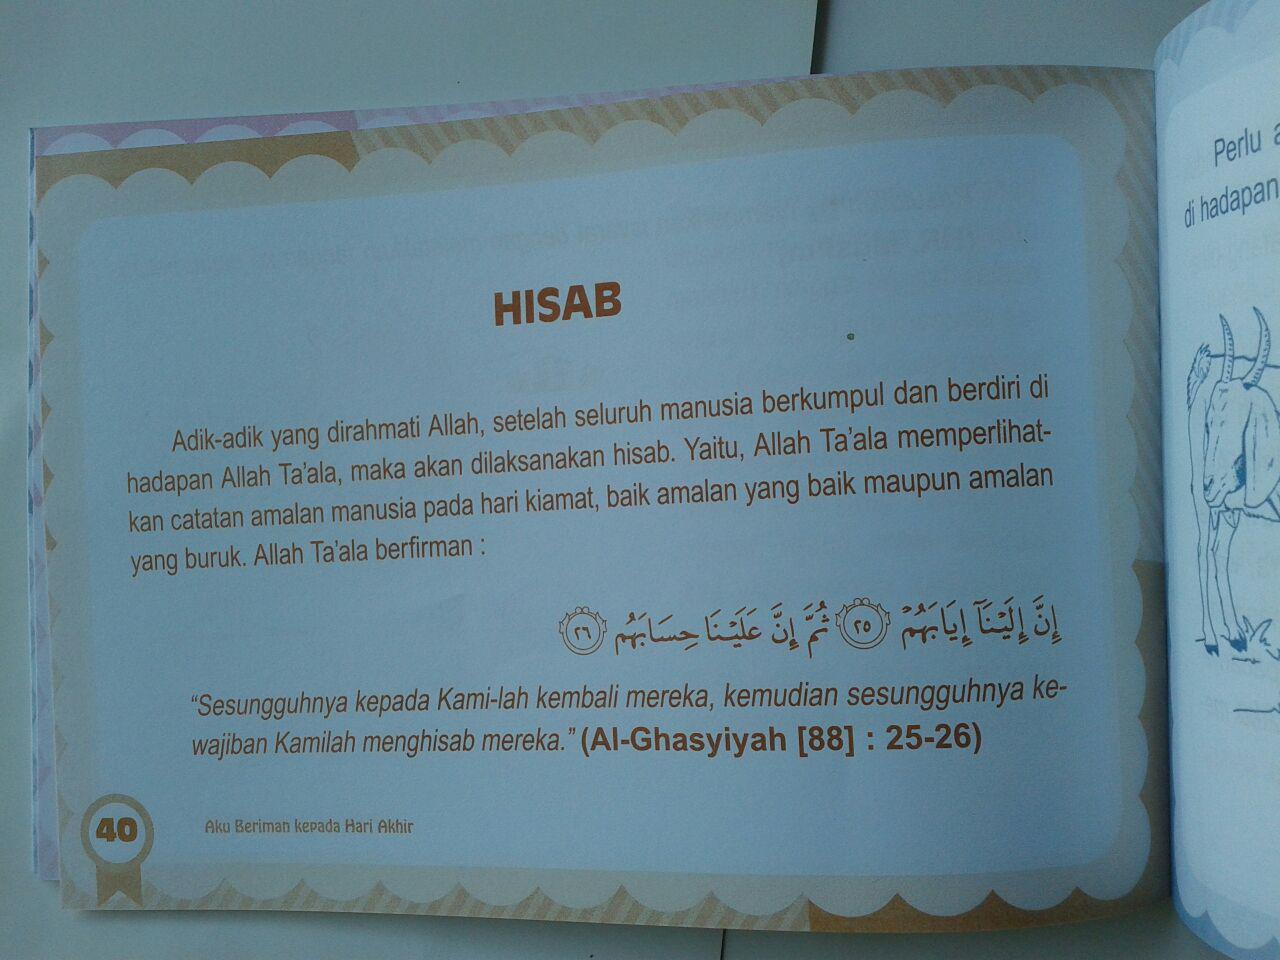 HISAB
Adik-adik yang dirahmati Allah, setelah seluruh manusia berkumpul dan berdiri di
hadapan Allah Ta'ala, maka akan dilaksanakan hisab. Yaitu, Allah Ta'ala memperlihat-
kan catatan amalan manusia pada hari kiamat, baik amalan yang baik maupun amalan
yang buruk. Allah Ta'ala berfirman :
إِنَّ إِلَيْنَآ إِيَابَهُمْ ٢٥ ثُمَّ إِنَّ عَلَيْنَا حِسَابَهُم ٢٦
“Sesungguhnya kepada Kami-lah kembali mereka, kemudian sesungguhnya ke-
wajiban Kamilah menghisab mereka.” (Al-Ghasyiyah [88] : 25-26)
40
Aku Beriman kepada Hari Akhir
Perlu
di hadapan